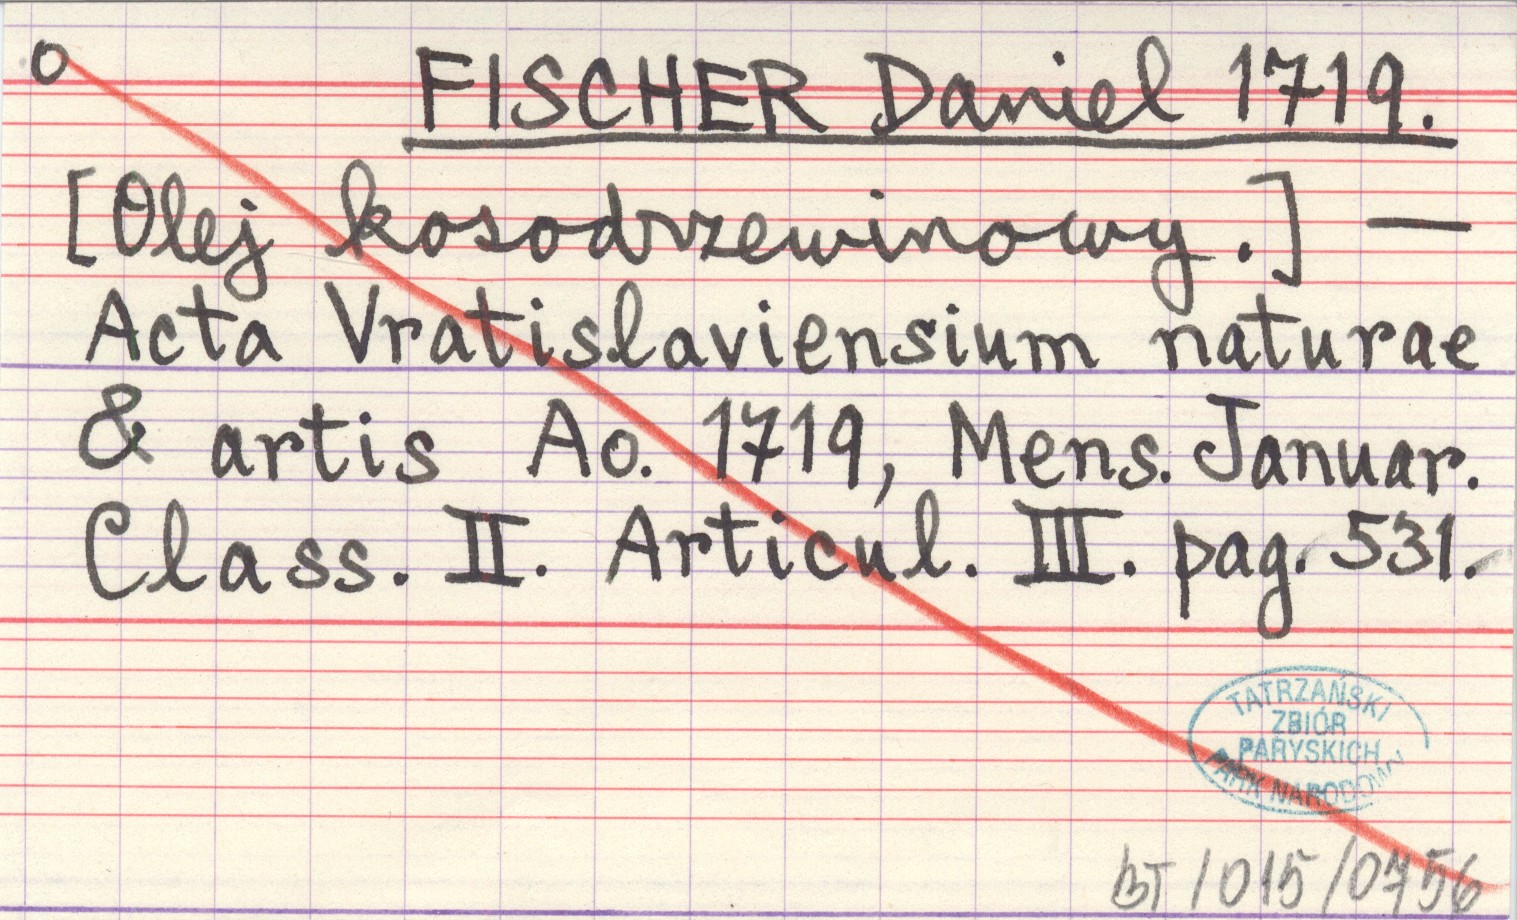 o FISCHER Daniel 1719.
[Olej kosodrzewinowy.] —
Acta Vratislaviensium naturae
& artis Ao. 1719, Mens. Januar.
Class. II. Articul. III. pag. 531.
TATRZAŃSKI
ZBIÓR
PARYSKICH
PARK NARODOWY
BT/015/0756